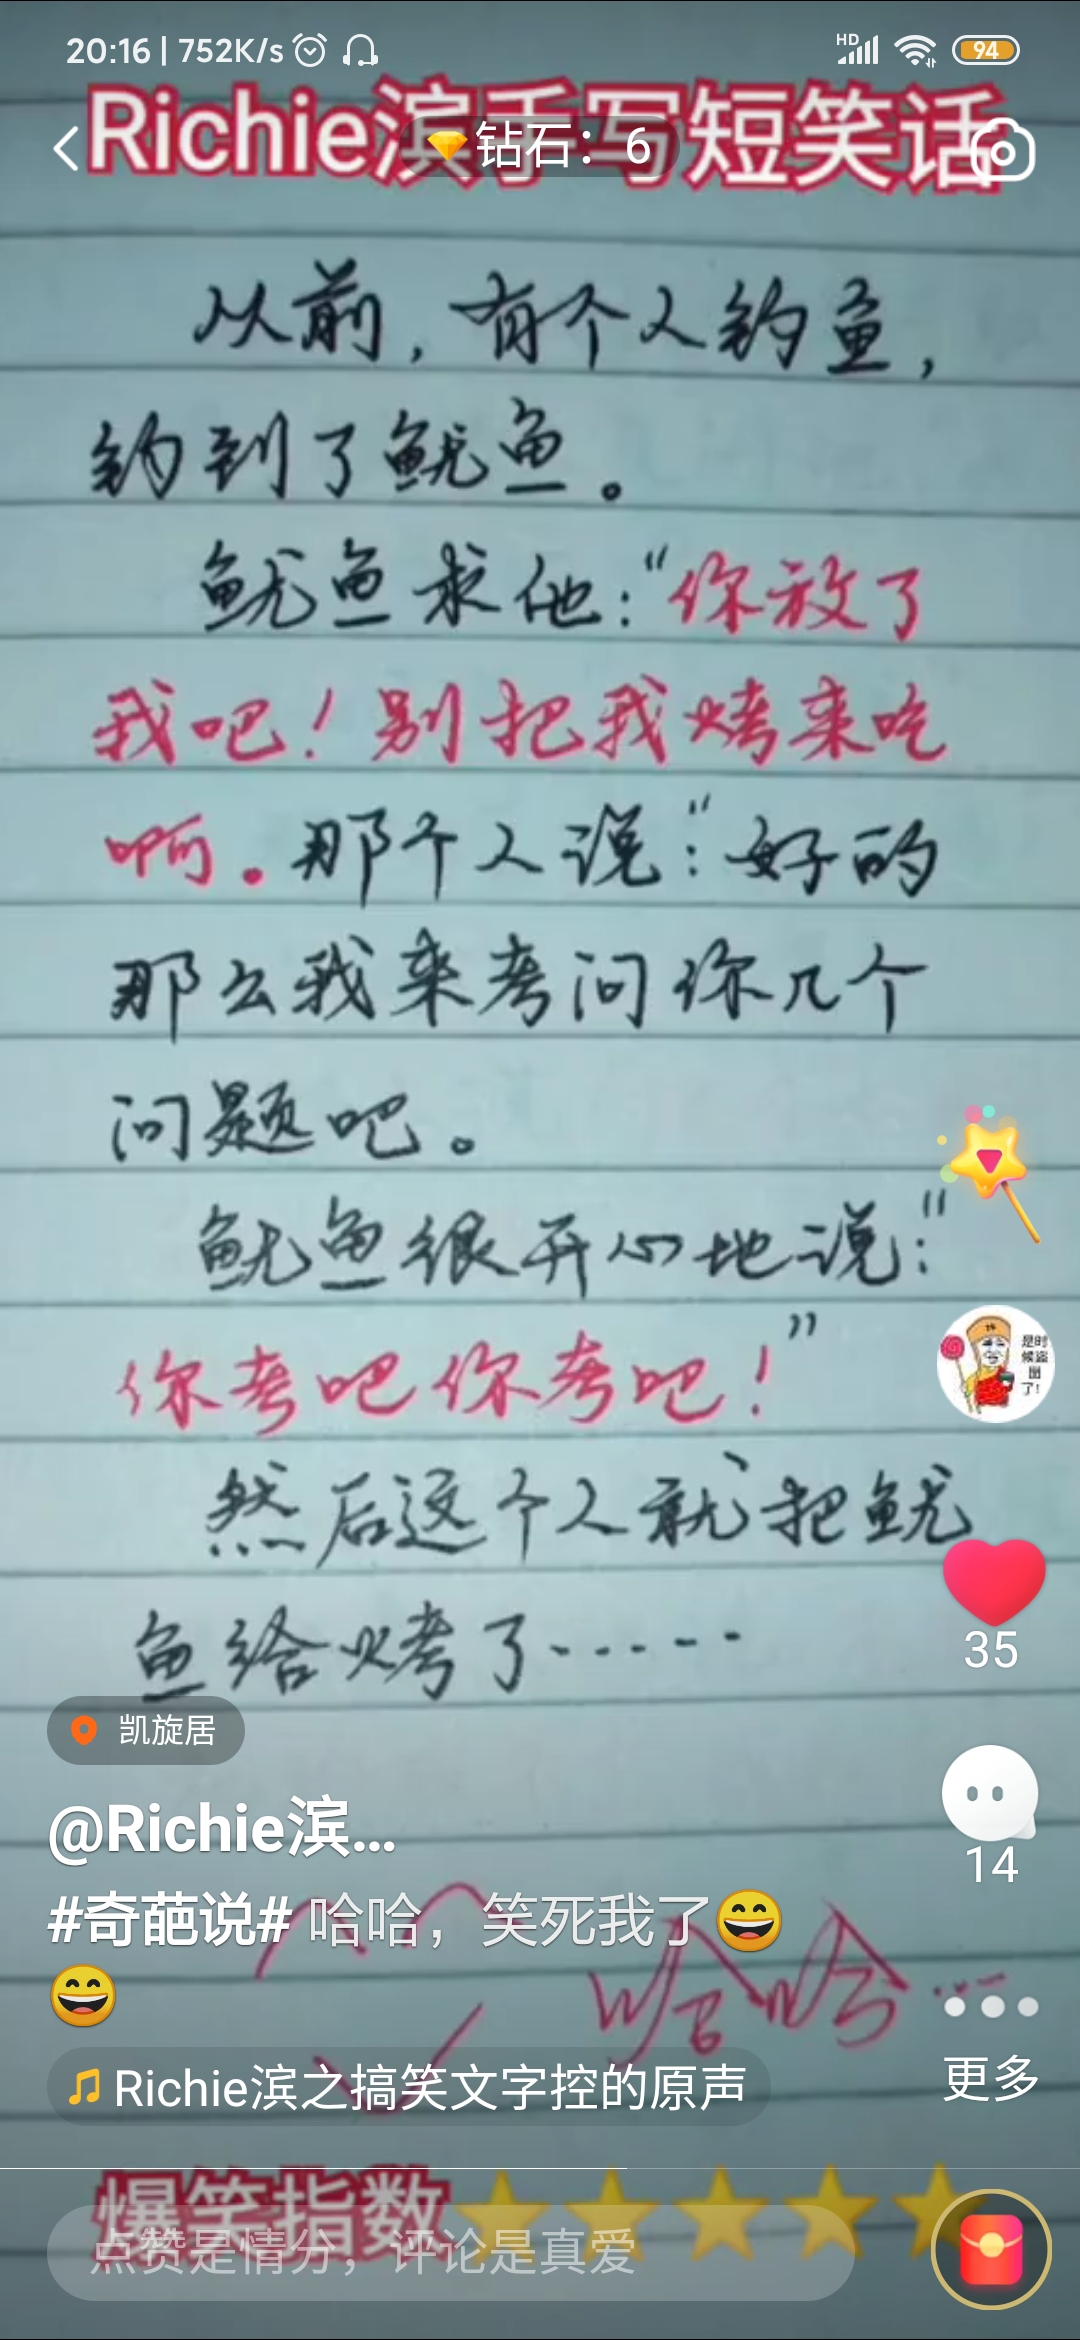 20:16 | 752K/s
HD
94
Richie滨手写短笑话
钻石：6
以前，有个人钓鱼，
钓到了鱿鱼。
鱿鱼求他：“你放了
我吧！别把我烤来吃
啊。那个人说：“好的
那么我来考问你几个
问题吧。
鱿鱼很开心地说：“
你考吧你考吧！”
然后这个人就把鱿
鱼给烤了······
是时
候盗
图
了!
35
凯旋居
14
@Richie滨...
#奇葩说# 哈哈，笑死我了😄
😄
哈哈...
更多
Richie滨之搞笑文字控的原声
爆笑指数★★★★★
点赞是情分，评论是真爱